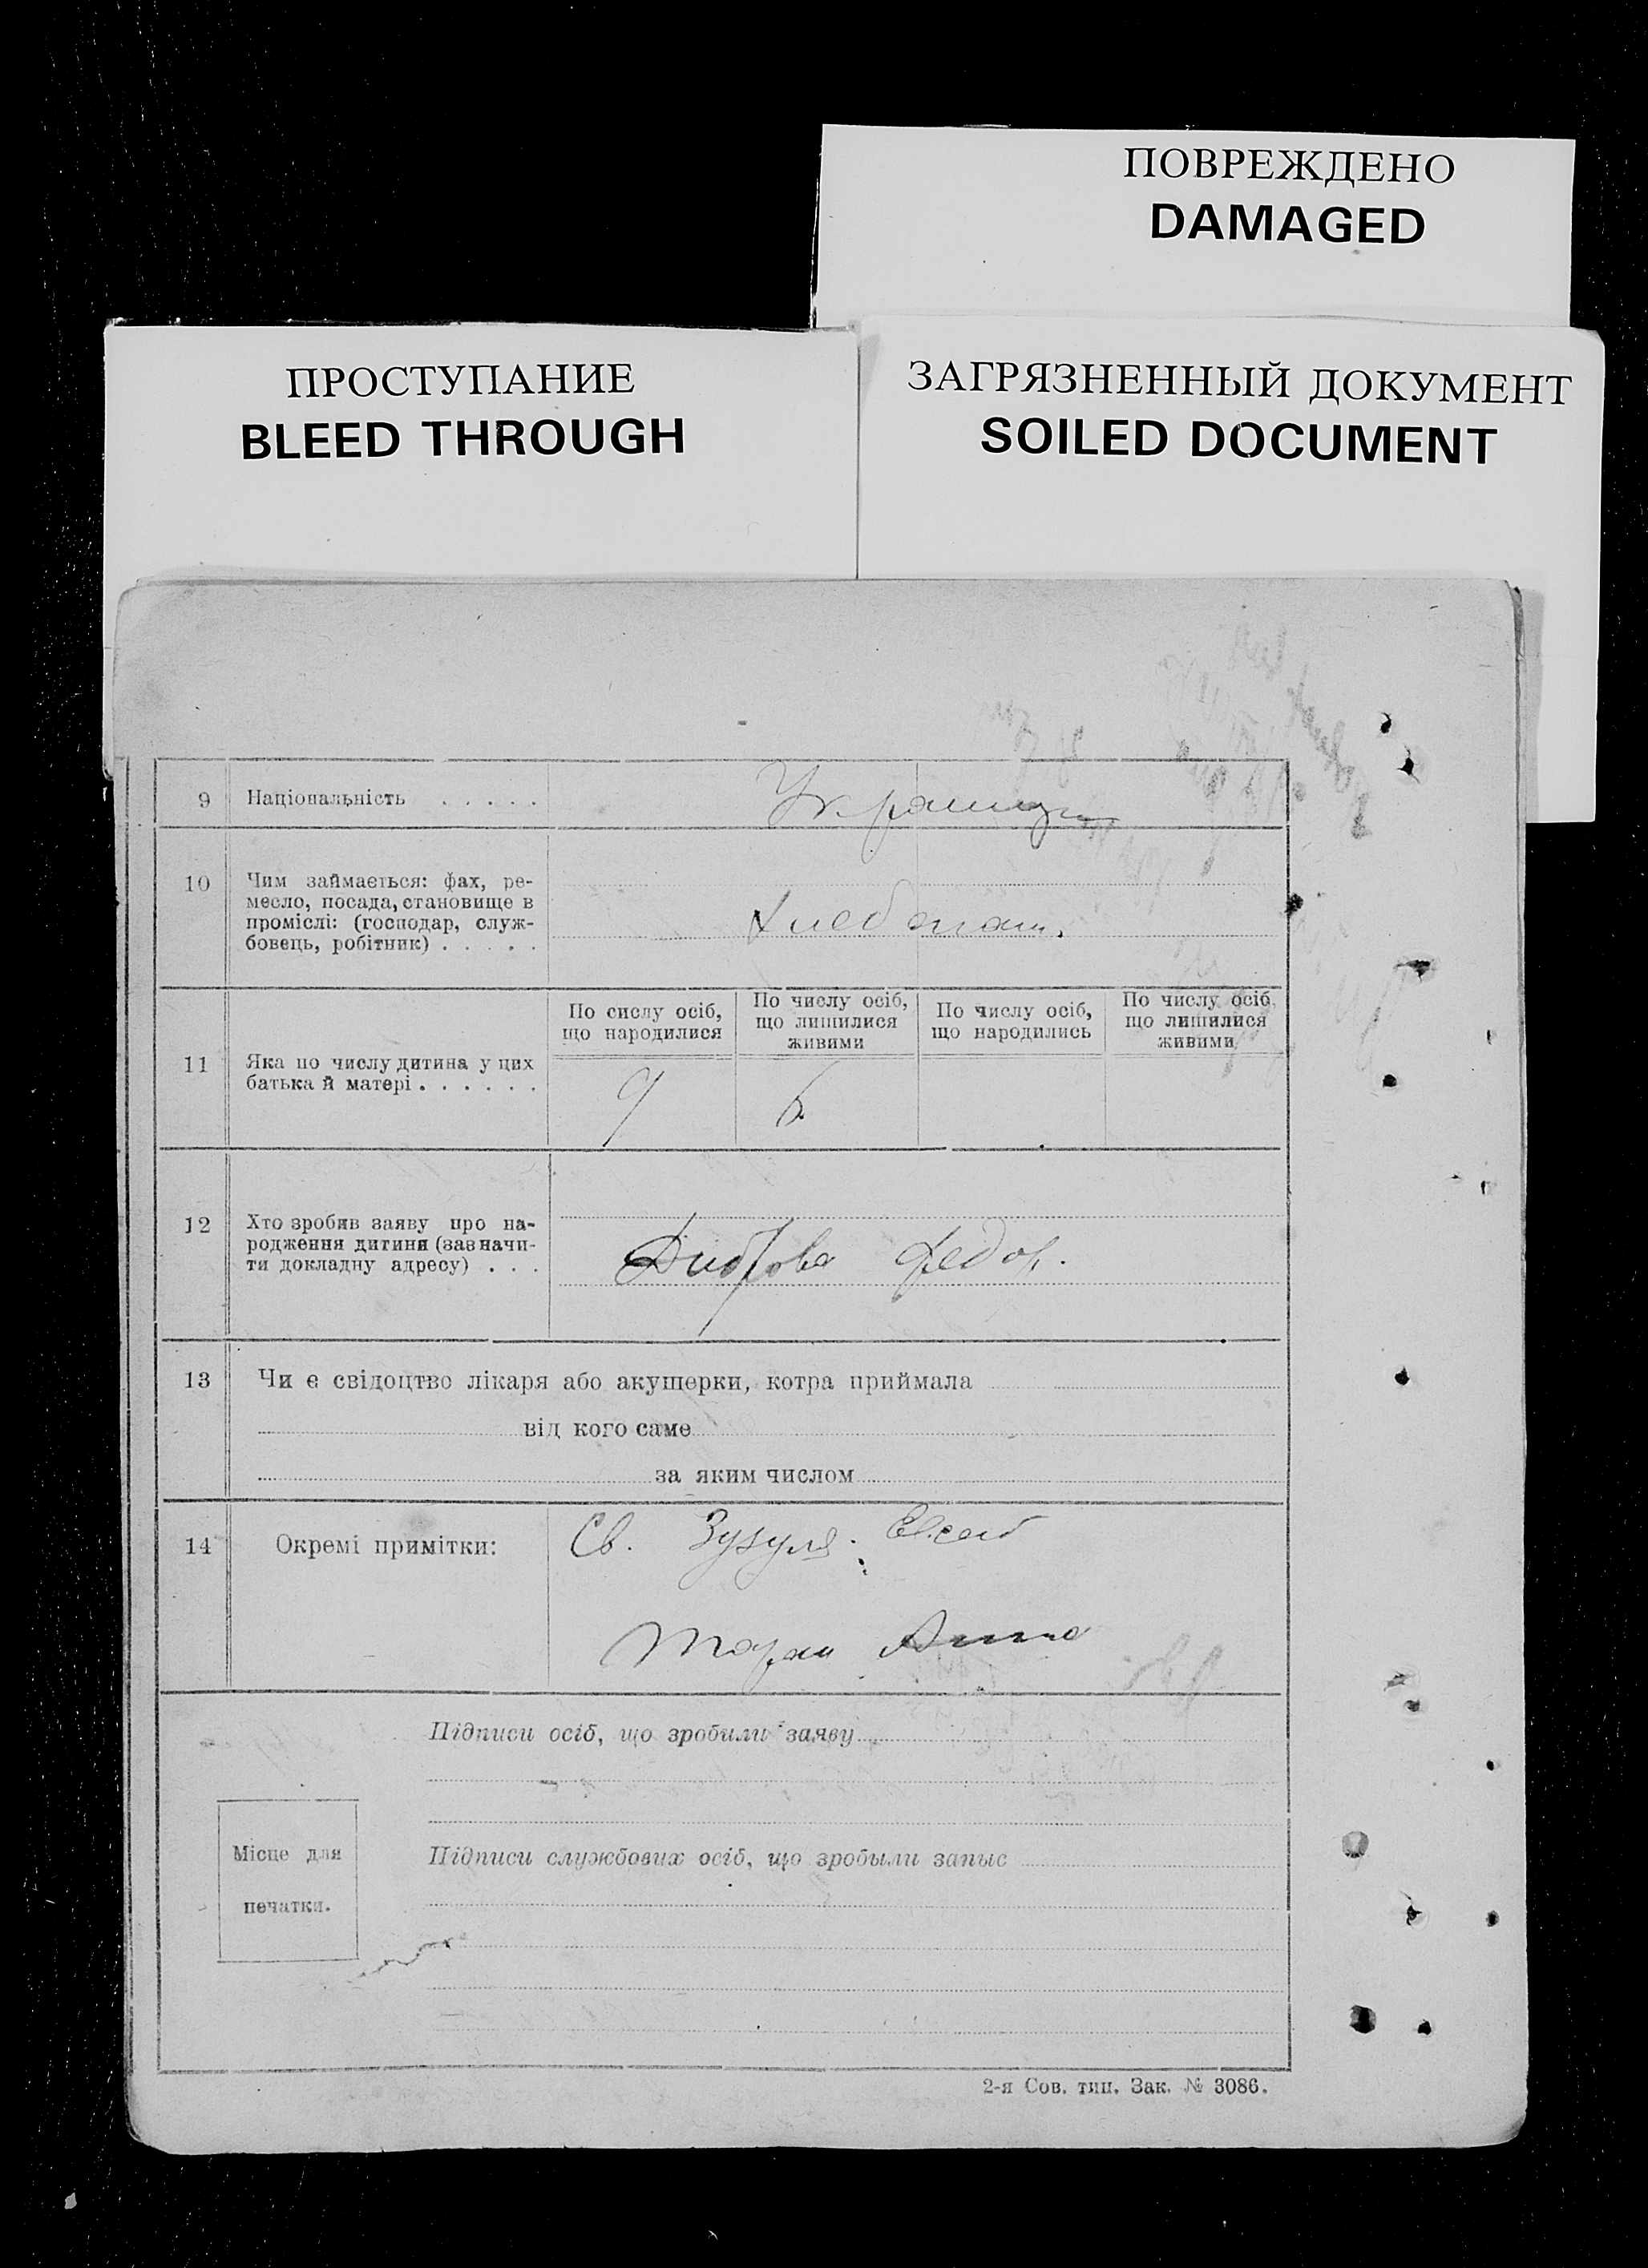 ПОВРЕЖДЕНО
DAMAGED
ПРОСТУПАНИЕ
BLEED THROUGH
ЗАГРЯЗНЕННЫЙ ДОКУМЕНТ
SOILED DOCUMENT
9 Національність . . . . .
10 Чим займається: фах, ре-
месло, посада, становище в
проміслі: (господар, служ-
бовець, робітник) . . . . .
11 Яка по числу дитина у цих
батька й матері . . . . . .
По сислу осіб,
що народилися
По числу осіб,
що лишилися
живими
По числу осіб,
що народились
По числу осіб,
що лишилися
живими
9 6
12 Хто зробив заяву про на-
родження дитини (зазначи-
ти докладну адресу) . . .
Федор.
13 Чи є свідоцтво лікаря або акушерки, котра приймала
від кого саме
за яким числом
14 Окремі примітки:
Св. Зузуля
Анна
Підписи осіб, що зробили заяву
Місце для
печатки.
Підписи службових осіб, що зробыли запыс
2-я Сов. тип. Зак. № 3086.